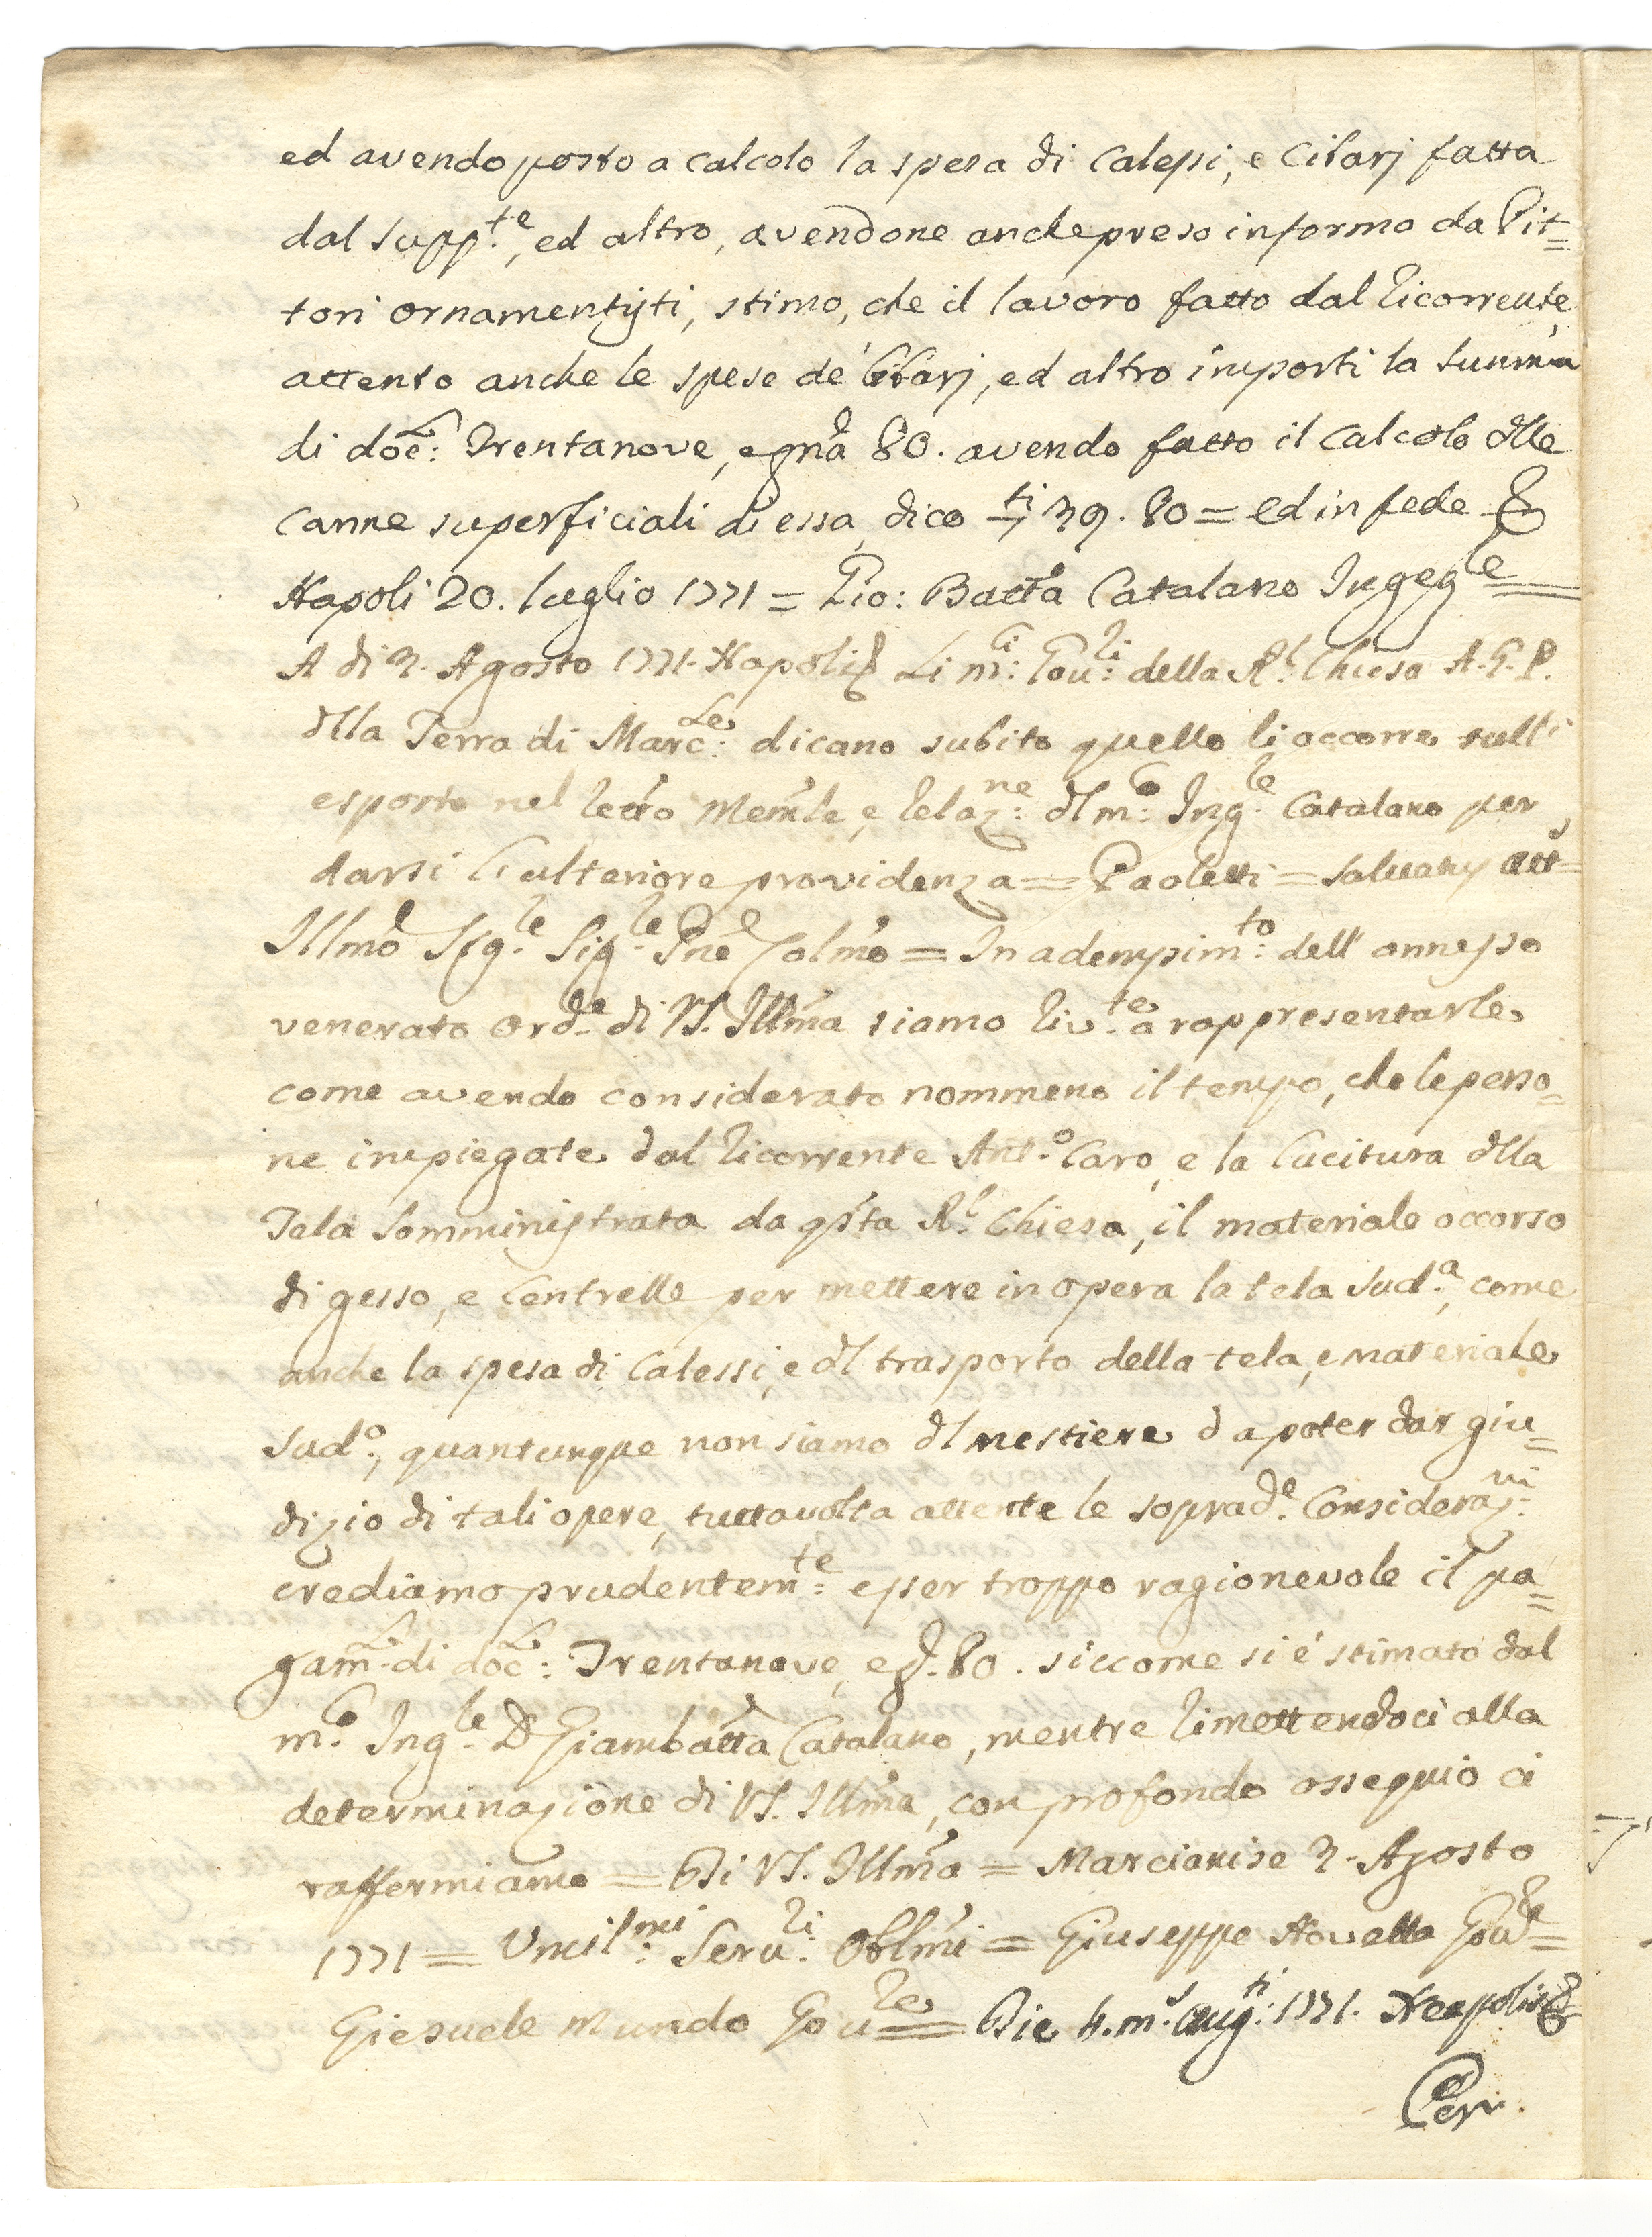 ed avendo posto a calcolo la spesa di Calessi, e Cibarj fatta
dal Supp.te, ed altro, avendone anche preso informo da Pit=
tori ornamentisti, stimo, che il lavoro fatto dal Ricorrente,
attento anche le spese de' Cibarj, ed altro importi la summa
di doc: Trentanove, e gna 80. avendo fatto il Calcolo dlle
canne superficiali di essa, dico 39. 80 = ed in fede
Napoli 20. luglio 1771 = Gio: Batta Catalano Ingeg.le
A di 3. Agosto 1771. Napoli Li m:ci Gov:ri della R.l Chiesa A. G. P.
dlla Terra di Marc:le dicano subito quello li occorre sull'
esposto nel retto Memle, e relaz:ne dl m:co Ing.le Catalano per
darsi l'ulteriore providenza = Paoletti = Salvany att=
Illmo Sig.le Sig.le Pne Colmo = In adempim:to dell' annesso
venerato ord.e di VS. Illma siamo riv.te a rappresentarle
come avendo considerato nommeno il tempo, che le perso=
ne impiegate dal ricorrente Ant.o Caro, e la Cucitura dlla
Tela somministrata da qsta R.l Chiesa, il materiale occorso
di gesso, e Centrelle per mettere in opera la tela Sud.a, come
anche la spesa di Calessi, e dl trasporto della tela, e materiale
Sud.o, quantunque non siamo dl mestiere da poter dar giu=
dizio di tali opere, tuttavolta attente le soprad.e Consideraz:ni
crediamo prudentem:te esser troppo ragionevole il pa=
gam.to di doc: Trentanove, e g. 80. siccome si è stimato dal
m.co Ing.le D. Giambatta Catalano, mentre rimettendoci alla
determinazione di VS. Illma, con profondo ossequio ci
raffermiamo = Di VS. Illma = Marcianise 3. Agosto
1771 = Umil:mi Serv:ri Oblmi = Giuseppe Novella Gov.re=
Giesuele Mundo Gov.re = Die 4. m.s Aug:ti 1771. Neapolis